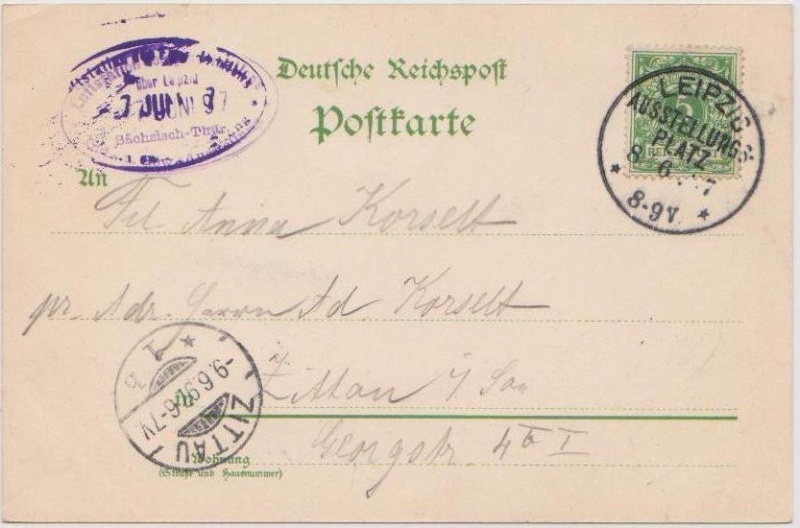 über Leipzig
JUNI 97
Sächsisch-Thür.
Deutsche Reichspost
Postkarte
5
LEIPZIG
AUSSTELLUNGS
PLATZ
8 6 7
8-9V.
An
Frl. Anna Korselt
pr. Adr. Herrn Ad. Korselt
in Zittau i/Sa
Georgstr. 4b I
Wohnung
(Straße und Hausnummer)
ZITTAU
-9.6.97.6-7V.
1